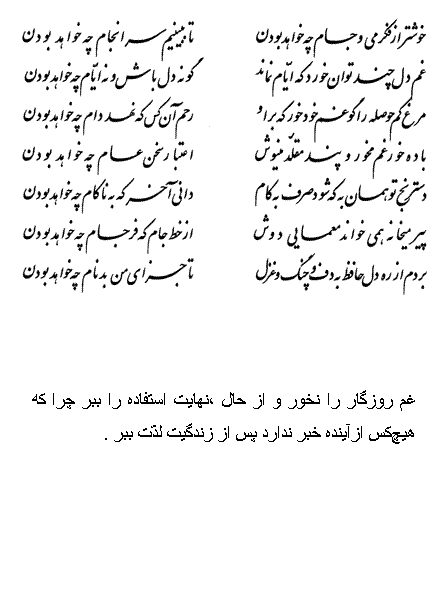 خوشتر از فکر می و جام چه خواهد بودن تا ببینیم سرانجام چه خواهد بودن
غم دل چند توان خورد که ایّام نماند گو نه دل باش و نه ایّام چه خواهد بودن
مرغ کم حوصله را گو غم خود خور که بر او رحم آن کس که نهد دام چه خواهد بودن
باده خور غم مخور و پند مقلّد منیوش اعتبار سخن عام چه خواهد بودن
دسترنج تو همان به که شود صرف به کام دانی آخر که به ناکام چه خواهد بودن
پیر میخانه همی خواند معمایی دوش از خط جام که فرجام چه خواهد بودن
بردم از ره دل حافظ به دف و چنگ و غزل تا جزای من بدنام چه خواهد بودن
غم روزگار را نخور و از حال ،نهایت استفاده را ببر چرا که
هیچ‌کس ازآینده خبر ندارد پس از زندگیت لذّت ببر .